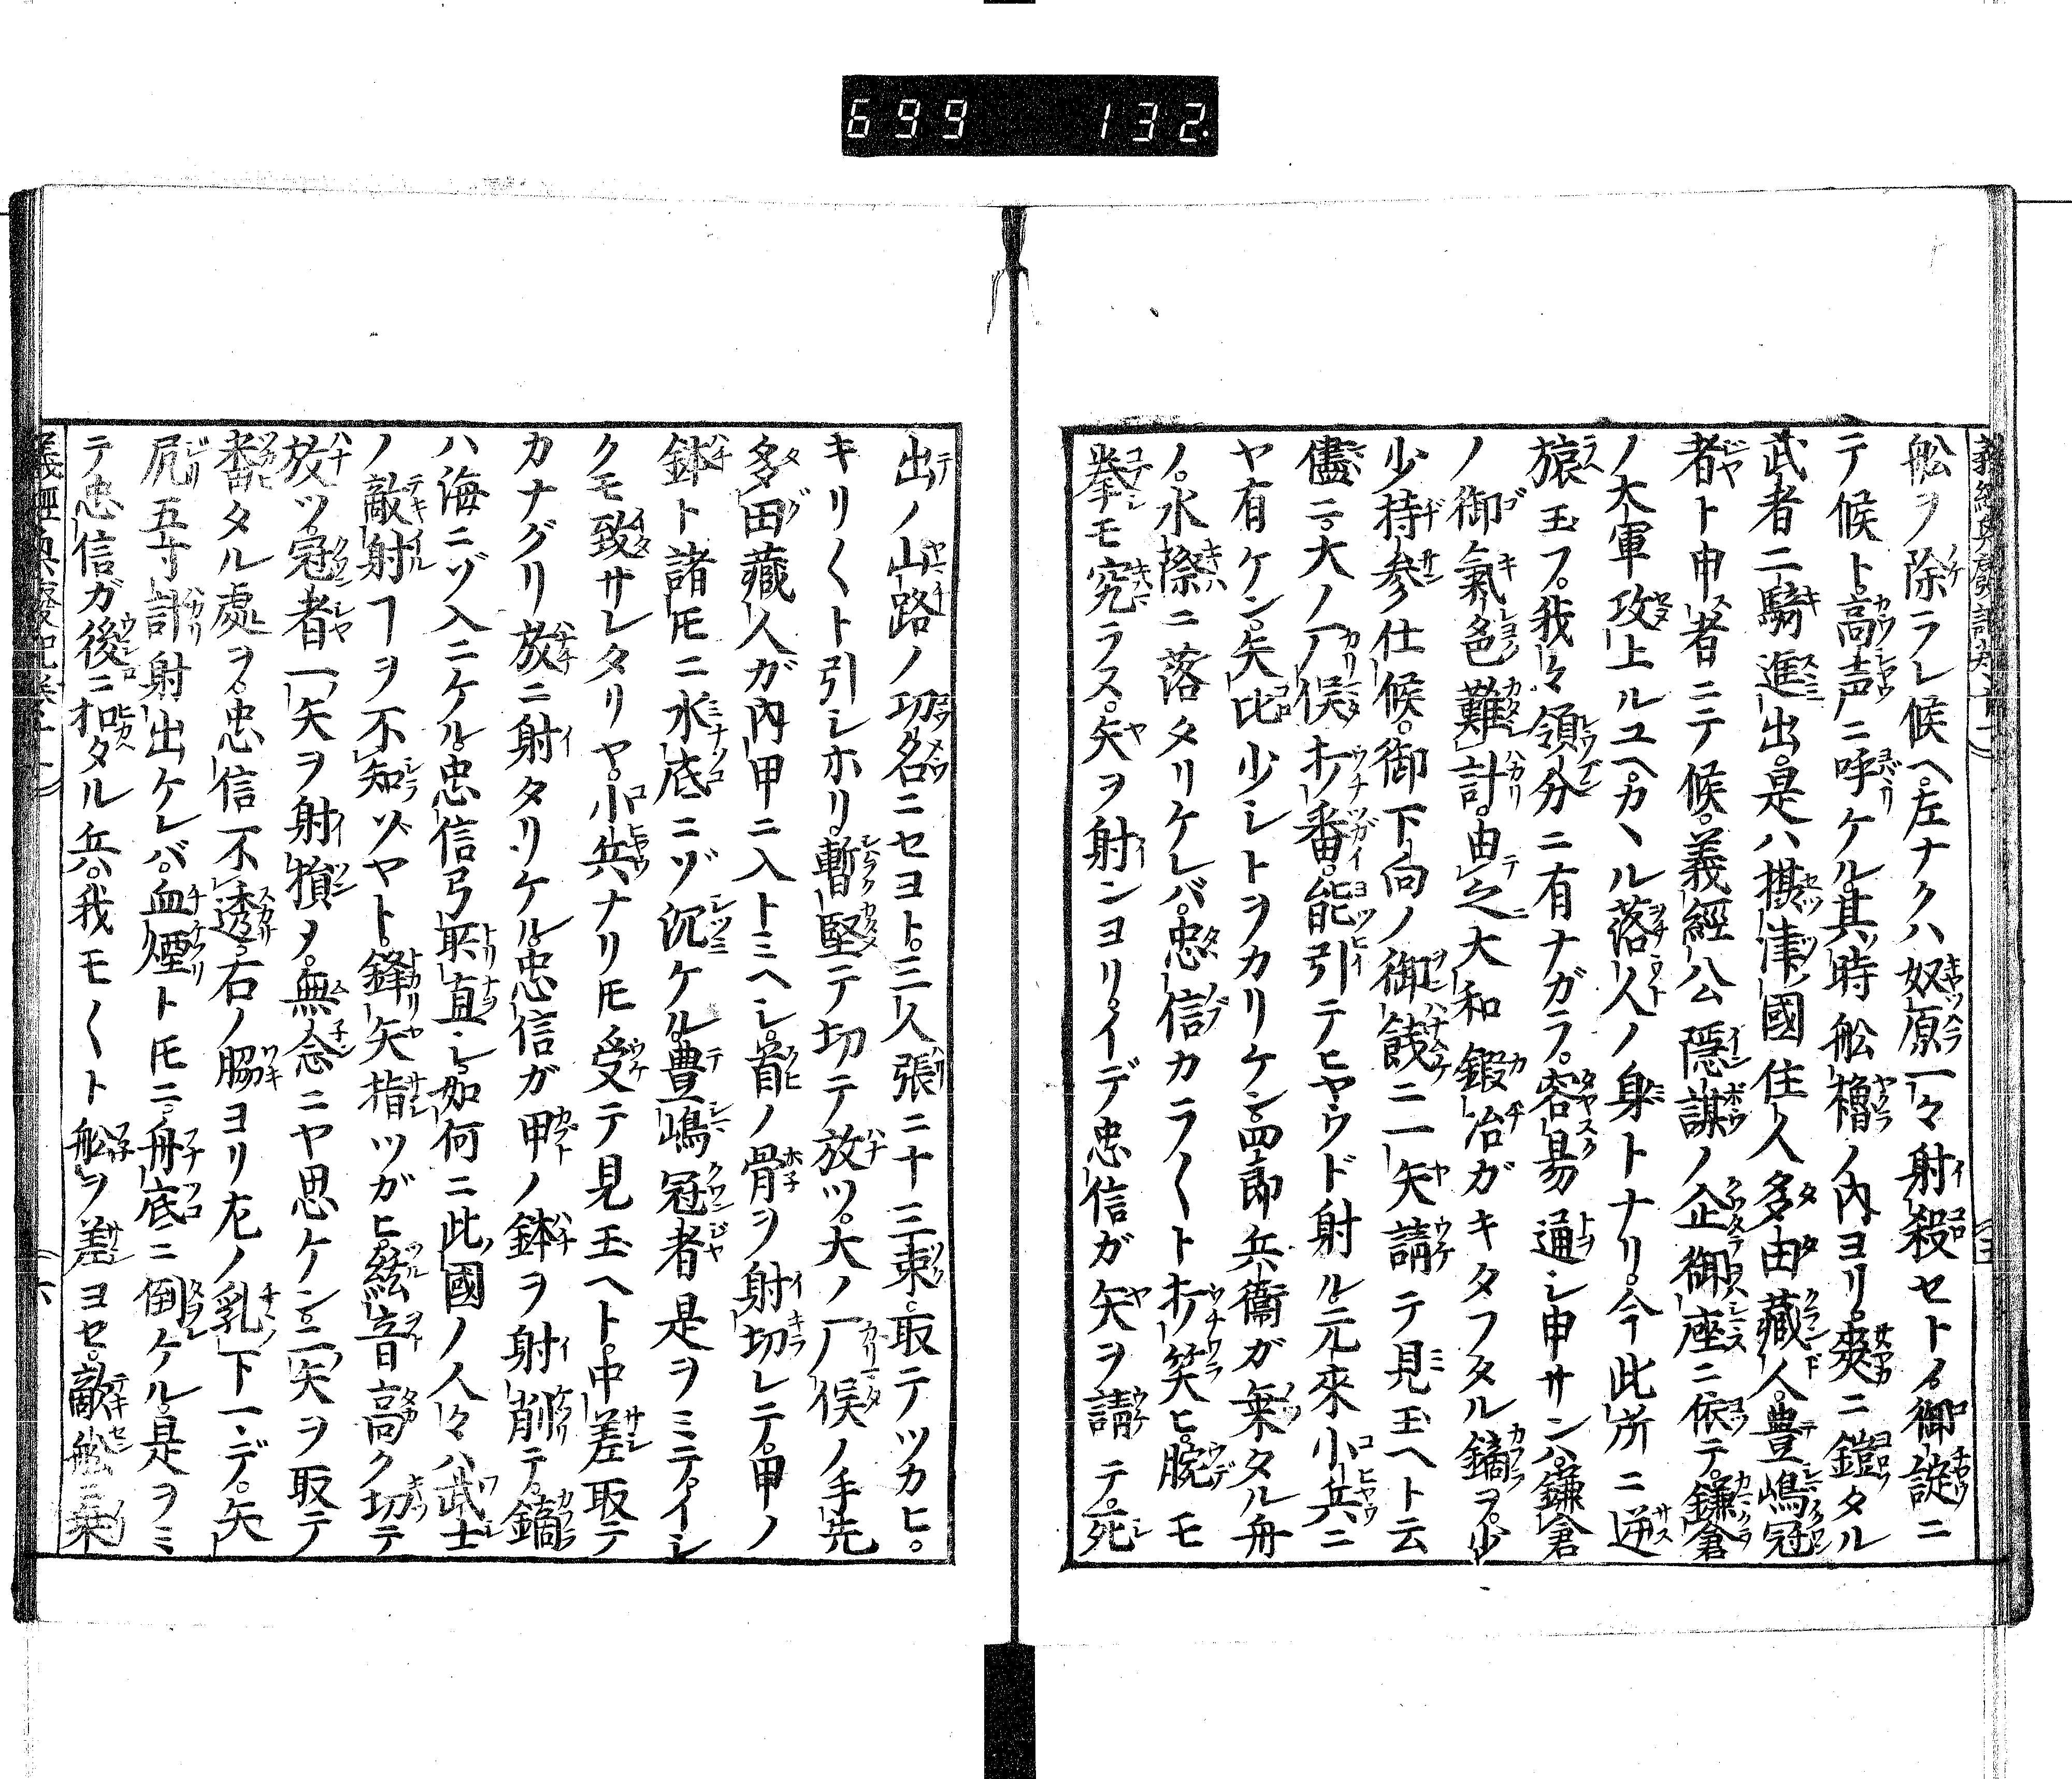 699 132.
舩ヲ除ラレ候ヘ。左ナクハ奴原一々射殺セトノ御諚ニ
テ候ト。高声ニ呼リケル。其時舩櫓ノ内ヨリ。爽ニ鎧タル
武者二騎進出。是ハ摂津國住人多田藏人。豊嶋冠
者ト申者ニテ候。義經公隠謀ノ企御座ニ依テ。鎌倉
ノ大軍攻上ルユヘ。カヽル落人ノ身トナリ。今此所ニ迯
玉フ。我々領分ニ有ナガラ。容易通シ申サンハ。鎌倉
ノ御氣色難計。由之大和鍛冶ガキタフタル鏑ヲ。少
少持参仕候。御下向ノ御餞ニ一矢請テ見玉ヘト云
儘ニ。大ノ厂俣打番。能引テヒヤウド射ル。元來小兵ニ
ヤ有ケン。矢比少シトヲカリケン。四郎兵衞ガ乗タル舟
ノ。水際ニ落タリケレバ。忠信カラ〱ト打笑ヒ。腕モ
拳モ究ラス。矢ヲ射ンヨリ。イデ忠信ガ矢ヲ請テ。死
出ノ山路ノ功名ニセヨト。三人張ニ十三束。取テツカヒ。
キリ〱ト引シホリ。暫堅テ切テ放ツ。大ノ厂俣ノ手先
多田藏人ガ内甲ニ入トミヘシ。首ノ骨ヲ射切レテ。甲ノ
鉢ト諸ﾄﾓニ水底ニゾ沉ケル。豊嶋冠者是ヲミテ。イシ
クモ致サレタリヤ。小兵ナリﾄﾓ受テ見玉ヘト。中差取テ
カナグリ放ニ射タリケル。忠信ガ甲ノ鉢ヲ射削テ。鏑
ハ海ニゾ入ニケル。忠信弓取直シ。如何ニ此國ノ人々ハ武士
ノ敵射ヿヲ不知ゾヤト。鋒矢指ツガヒ。絃音高ク切テ
放ツ。冠者一矢ヲ射損メ。無念ニヤ思ケン。二矢ヲ取テ
番タル處ヲ。忠信不透。右ノ脇ヨリ左ノ乳下マデ。矢
尻五寸計射出ケレバ。血煙トﾄﾓニ。舟底ニ倒ケル。是ヲミ
テ忠信ガ後ニ扣タル兵。我モ〱ト舩ヲ差ヨセ。敵舩ニ乗
六